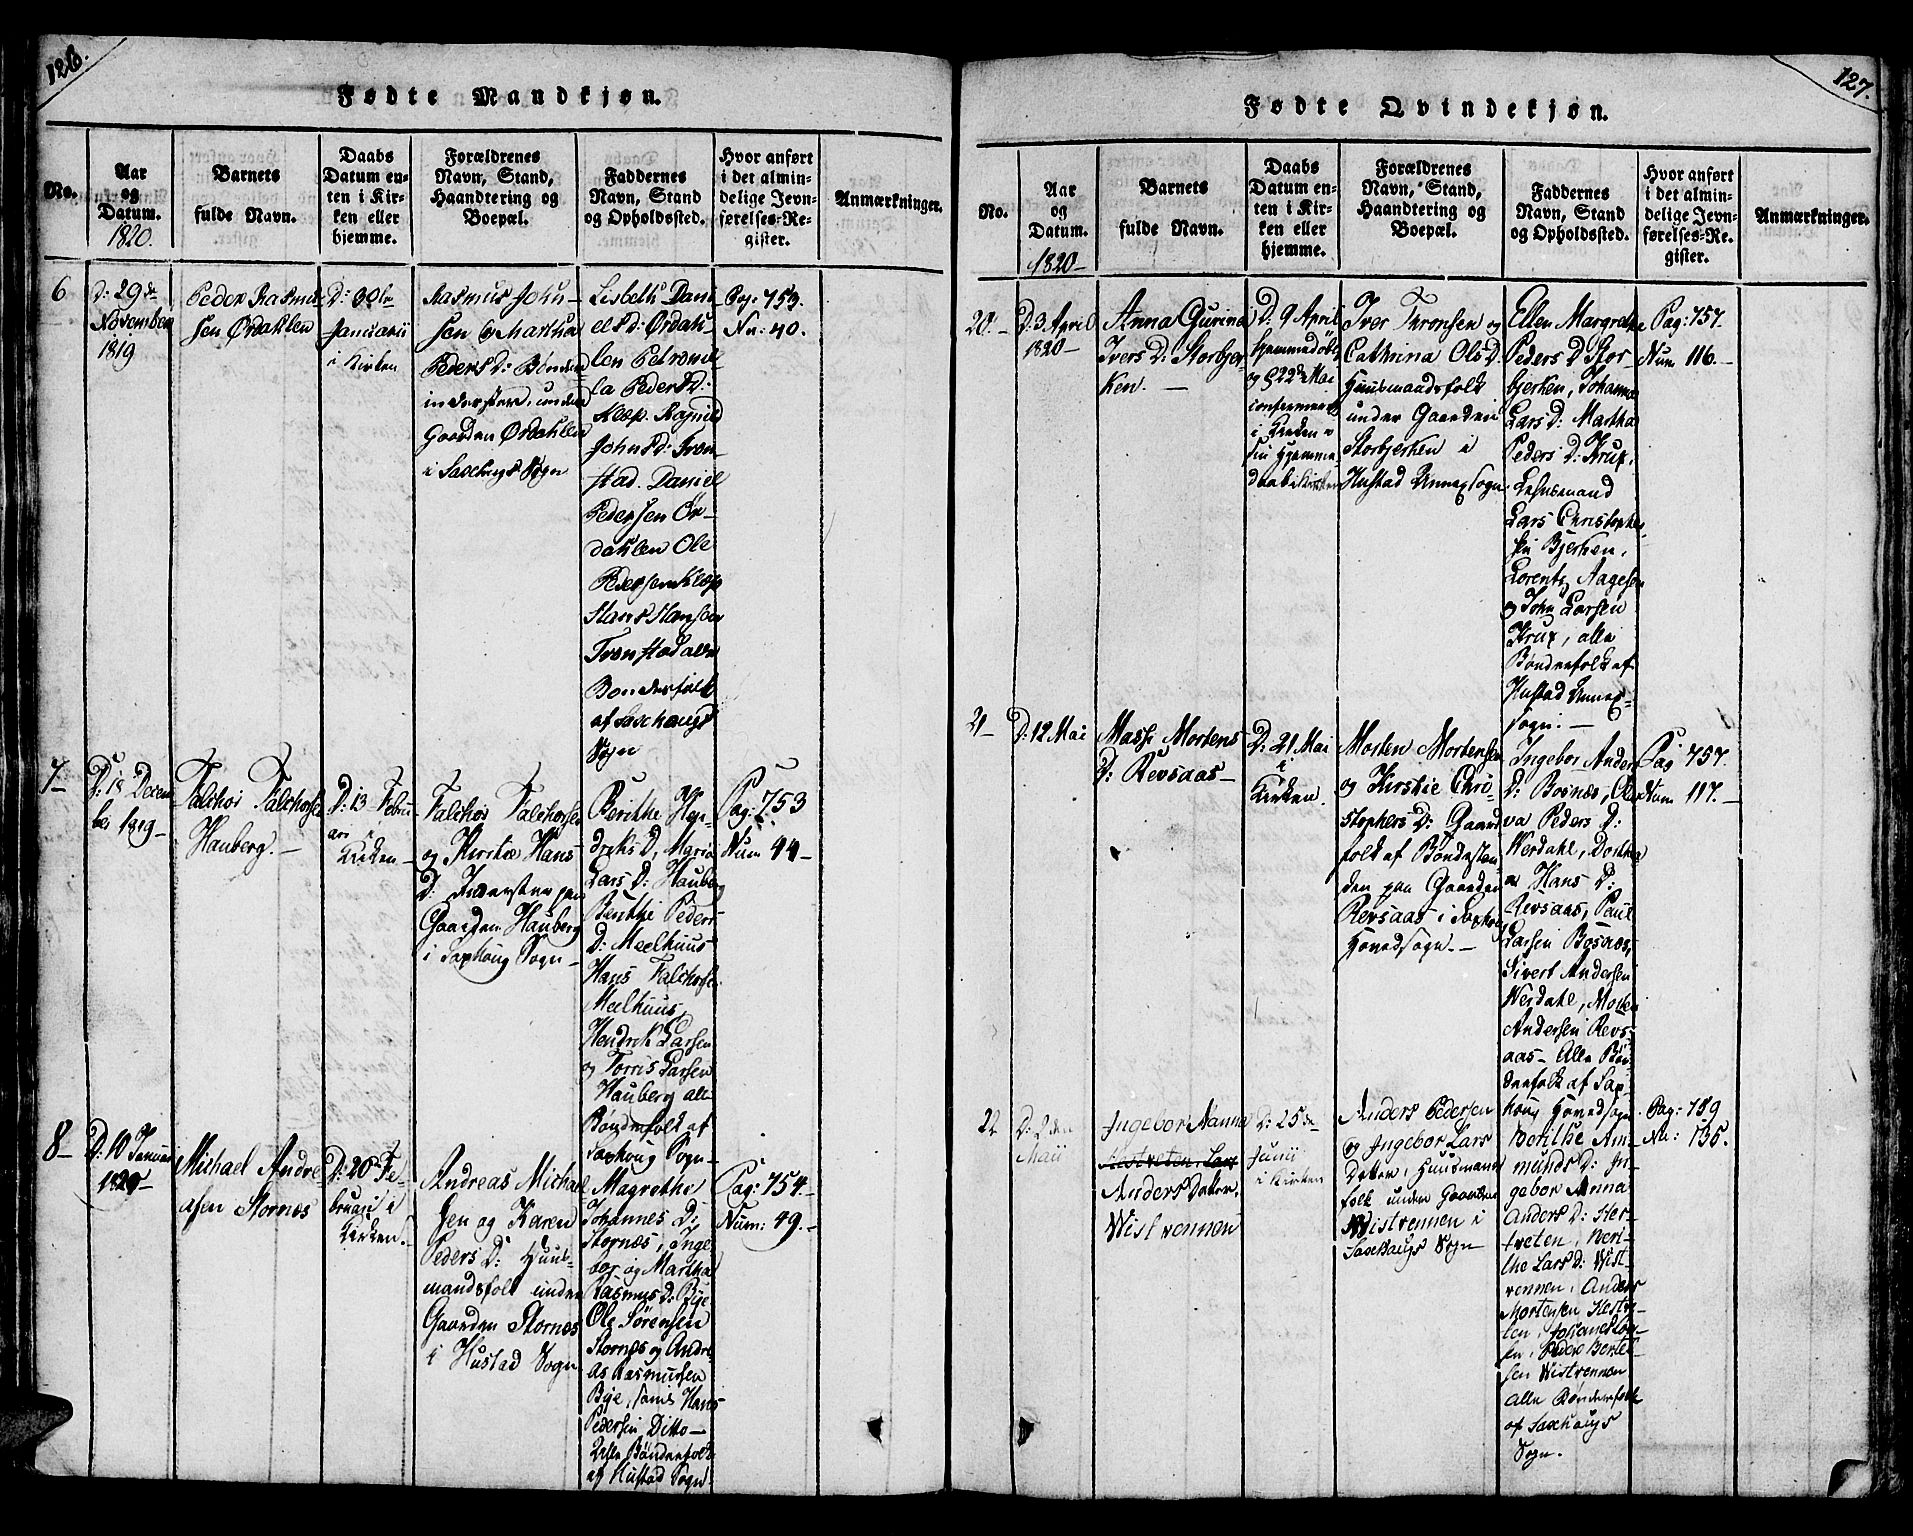 126.
Fødte Mandkjøn.
No.
Aar
og
Datum.
1820.
Barnets
fulde Navn.
Daabs
Datum en-
ten i Kir-
ken eller
hjemme.
Forældrenes
Navn, Stand,
Haandtering og
Boepæl.
Faddernes
Navn, Stand
og Opholdssted.
Hvor anført
i det almin-
delige Jevn-
førelses-Re-
gister.
Anmærkninger.
6
D: 29de
November
1819
Peder Rasmus
sen Ørdahlen
Januarii
i Kirken
Rasmus John-
sen og Martha
Peders D: Bønder
inderster, under
Gaarden Ørdahlen
i Saxhaugs Sogn
Lisbeth Dani
els D: Ørdah-
len Petronel
la Peders D:
Klep. Ragnild
Johns D: Tron
stad. Daniel
Pedersen Ør-
dahlen Ole
Pedersen Klep
Hans Hansen
Tronstad alle
Bonderfolk
af Saxhaugs
Sogn
Pag: 753.
No: 40.
7
D: 18 Decem
ber 1819-
Falchor Falchorsen
Hauberg.-
D: 13 Febru
arii i
Kirken-
Falchor Falchorsen
og Kirstie Hans
D: Inderster paa
Gaarden Hauberg
i Saxhoug Sogn-
Berithe Hen-
driks D, Maria
Lars D: Hauberg
Benthe Peders
D: Meelhuus-
Hans Falchorsen
Meelhuus,
Hendrik Larsen
og Torris Larsen
Hauberg alle
Bønderfolk af
Saxhoug Sogn-
Pag: 753
Num 44-
8-
D: 10 Januar
1820-
Michael Andre
asen Stornæs
D: 20 Fe-
bruarii i
Kirken.
Andreas Michael
sen og Karen
Peders D: Huus-
mandsfolk under
Gaarden Stornæs
i Hustad Sogn
Magrethe
Johannes D:
Stornæs, Inge
bor og Martha
Rasmus D: Bye
Ole Sørensen
Stornæs og Andre-
as Rasmussen
Bye, samt Hans
Pedersen Ditto-
Alle Bønderfolk
af Hustad Sogn
Pag: 754-
Num: 49.-
127.
Fødte Qvindekjøn.
No.
Aar
og
Datum.
1820-
Barnets
fulde Navn.
Daabs
Datum en-
ten i Kir-
ken eller
hjemme.
Forældrenes
Navn, Stand,
Haandtering og
Boepæl.
Faddernes
Navn, Stand
og Opholdssted.
Hvor anført
i det almin-
delige Jevn-
førelses-Re-
gister.
Anmærkninger.
20-
D: 3 April
1820-
Anna Gurina
Ivers D: Storbjer
ken.-
D: 9 April
hjemmedøbt
og D 22de Mai
confirmeret
i Kirken
sin Hjemme
daab i Kirken
Iver Tronsen og
Cathrina Ols D
Huusmandsfolk
under Gaarden
Storbjerken i
Hustad Annexsogn
Ellen Margrethe
Peders D Stor
bjerken, Johanna
Lars D: Martha
Peders D: Krux,
Lehnsmand
Lars Christophe
sen Bjerken,
Lorentz Aagesen
og John Larsen
Krux, alle
Bønderfolk af
Hustad Annex-
sogn.-
Pag: 757-
Num 116.-
21-
D: 12 Mai
Massi Mortens
D: Revsaas-
D: 21 Mai
i
Kirken.
Morten Mortensen
og Kirstie Chri-
stophers D: Gaard
folk af Bondestan
den paa Gaarden
Revsaas i Saxhoug
Hovedsogn.-
Ingebor Anders
D: Bosnæs,
Peders D:
Werdahl, Dorthea
Hans D:
Revsaas, Paul
Larsen Bosaas,
Sivert Andersen
Werdahl, Morten
Andersen Revs-
aas- Alle Bøn-
derfolk af Sax
houg Hovedsogn.
Pag 757.
Num 117.-
22
D: 2den
Maii
Ingebor Nanna
Anders Datter.
Wistvennen
D: 25de
Junii
i Kirken
Anders Pedersen
og Ingebor Lars
Datter, Huusmand
folk under Gaarden
Wistvennen i
Saxhaugs Sogn
Berithe Am-
munds D: In-
gebor Anna
Anders D: Her-
treten, Beri-
the Lars D: Wist-
vennen, Anders
Mortensen Hestre-
ten, Johanes Lar-
sen, Peder Bertel-
sen Wistvennen
Alle Bønderfolk
af Saxhaugs
Sogn.
Pag: 759
No: 135.